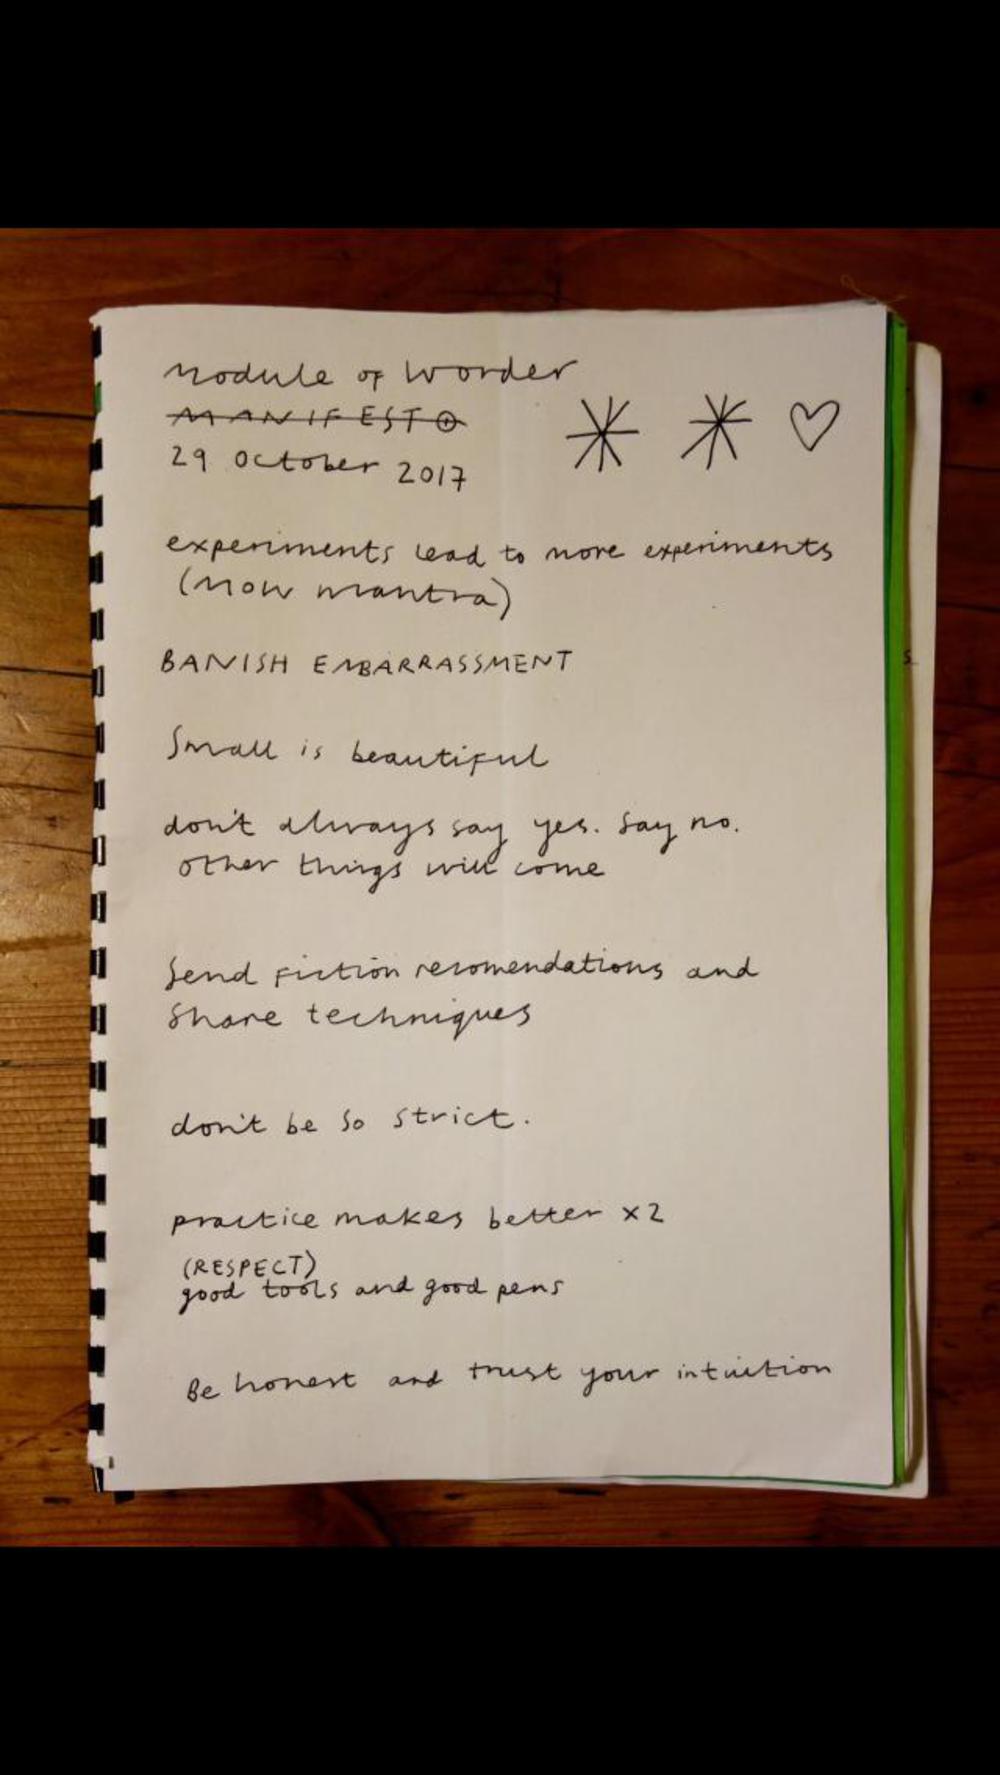 Module of Wonder
MANIFESTO
29 October 2017
experiments lead to more experiments
(NOW mantra)
BANISH EMBARRASSMENT
Small is beautiful
don't always say yes. Say no.
other things will come
Send fiction recomendations and
Share techniques
don't be so strict.
practice makes better x2
(RESPECT)
good tools and good pens
Be honest and trust your intuition